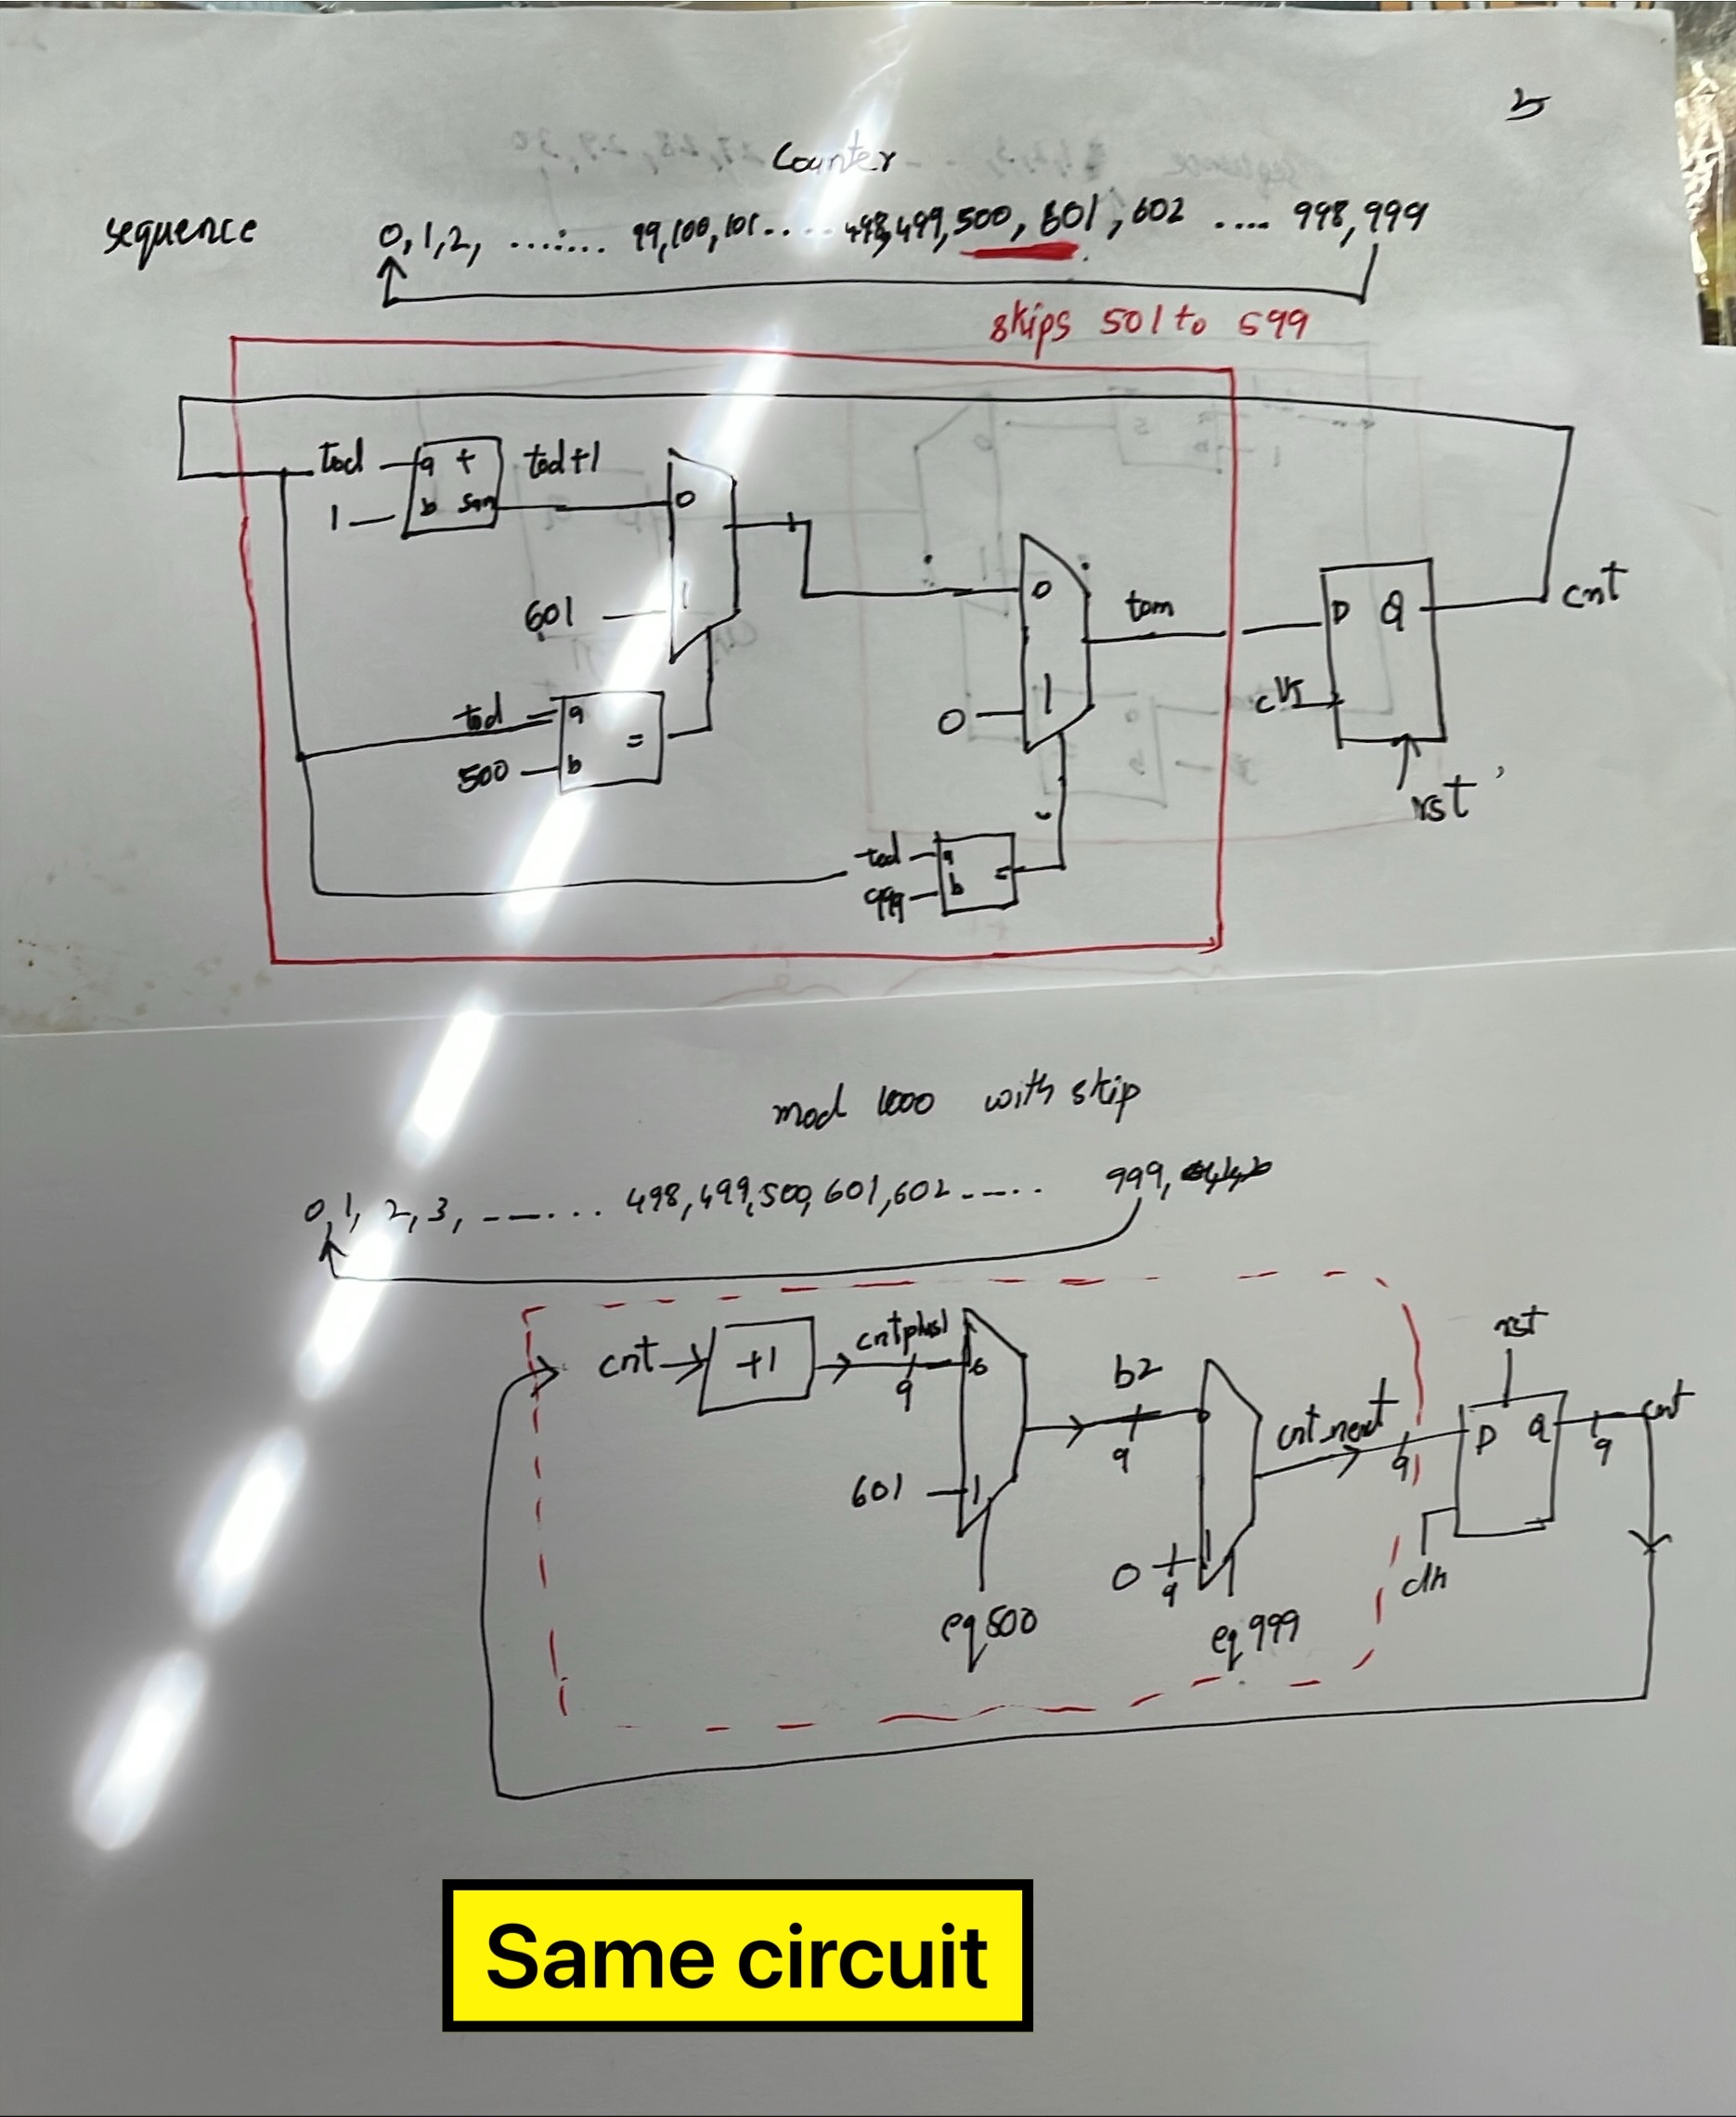 5
Counter
sequence 0,1,2, ........ 99,100,101.... 498,499,500, 601, 602 ..... 998,999
skips 501 to 599
tod a + tod+1
1 b sum
0
601 1
tod a
500 b =
0 tom D Q cnt
0 1 clk
rst
tod a
999 b =
mod 1000 with skip
0,1, 2,3, ------... 498,499,500,601,602 ----.. 999,
cnt +1 cntplus1 9 0
601 1
eq500
b2 9
0 9 1
eq999
cnt_next 9
rst
D Q 9 cnt
clk
Same circuit